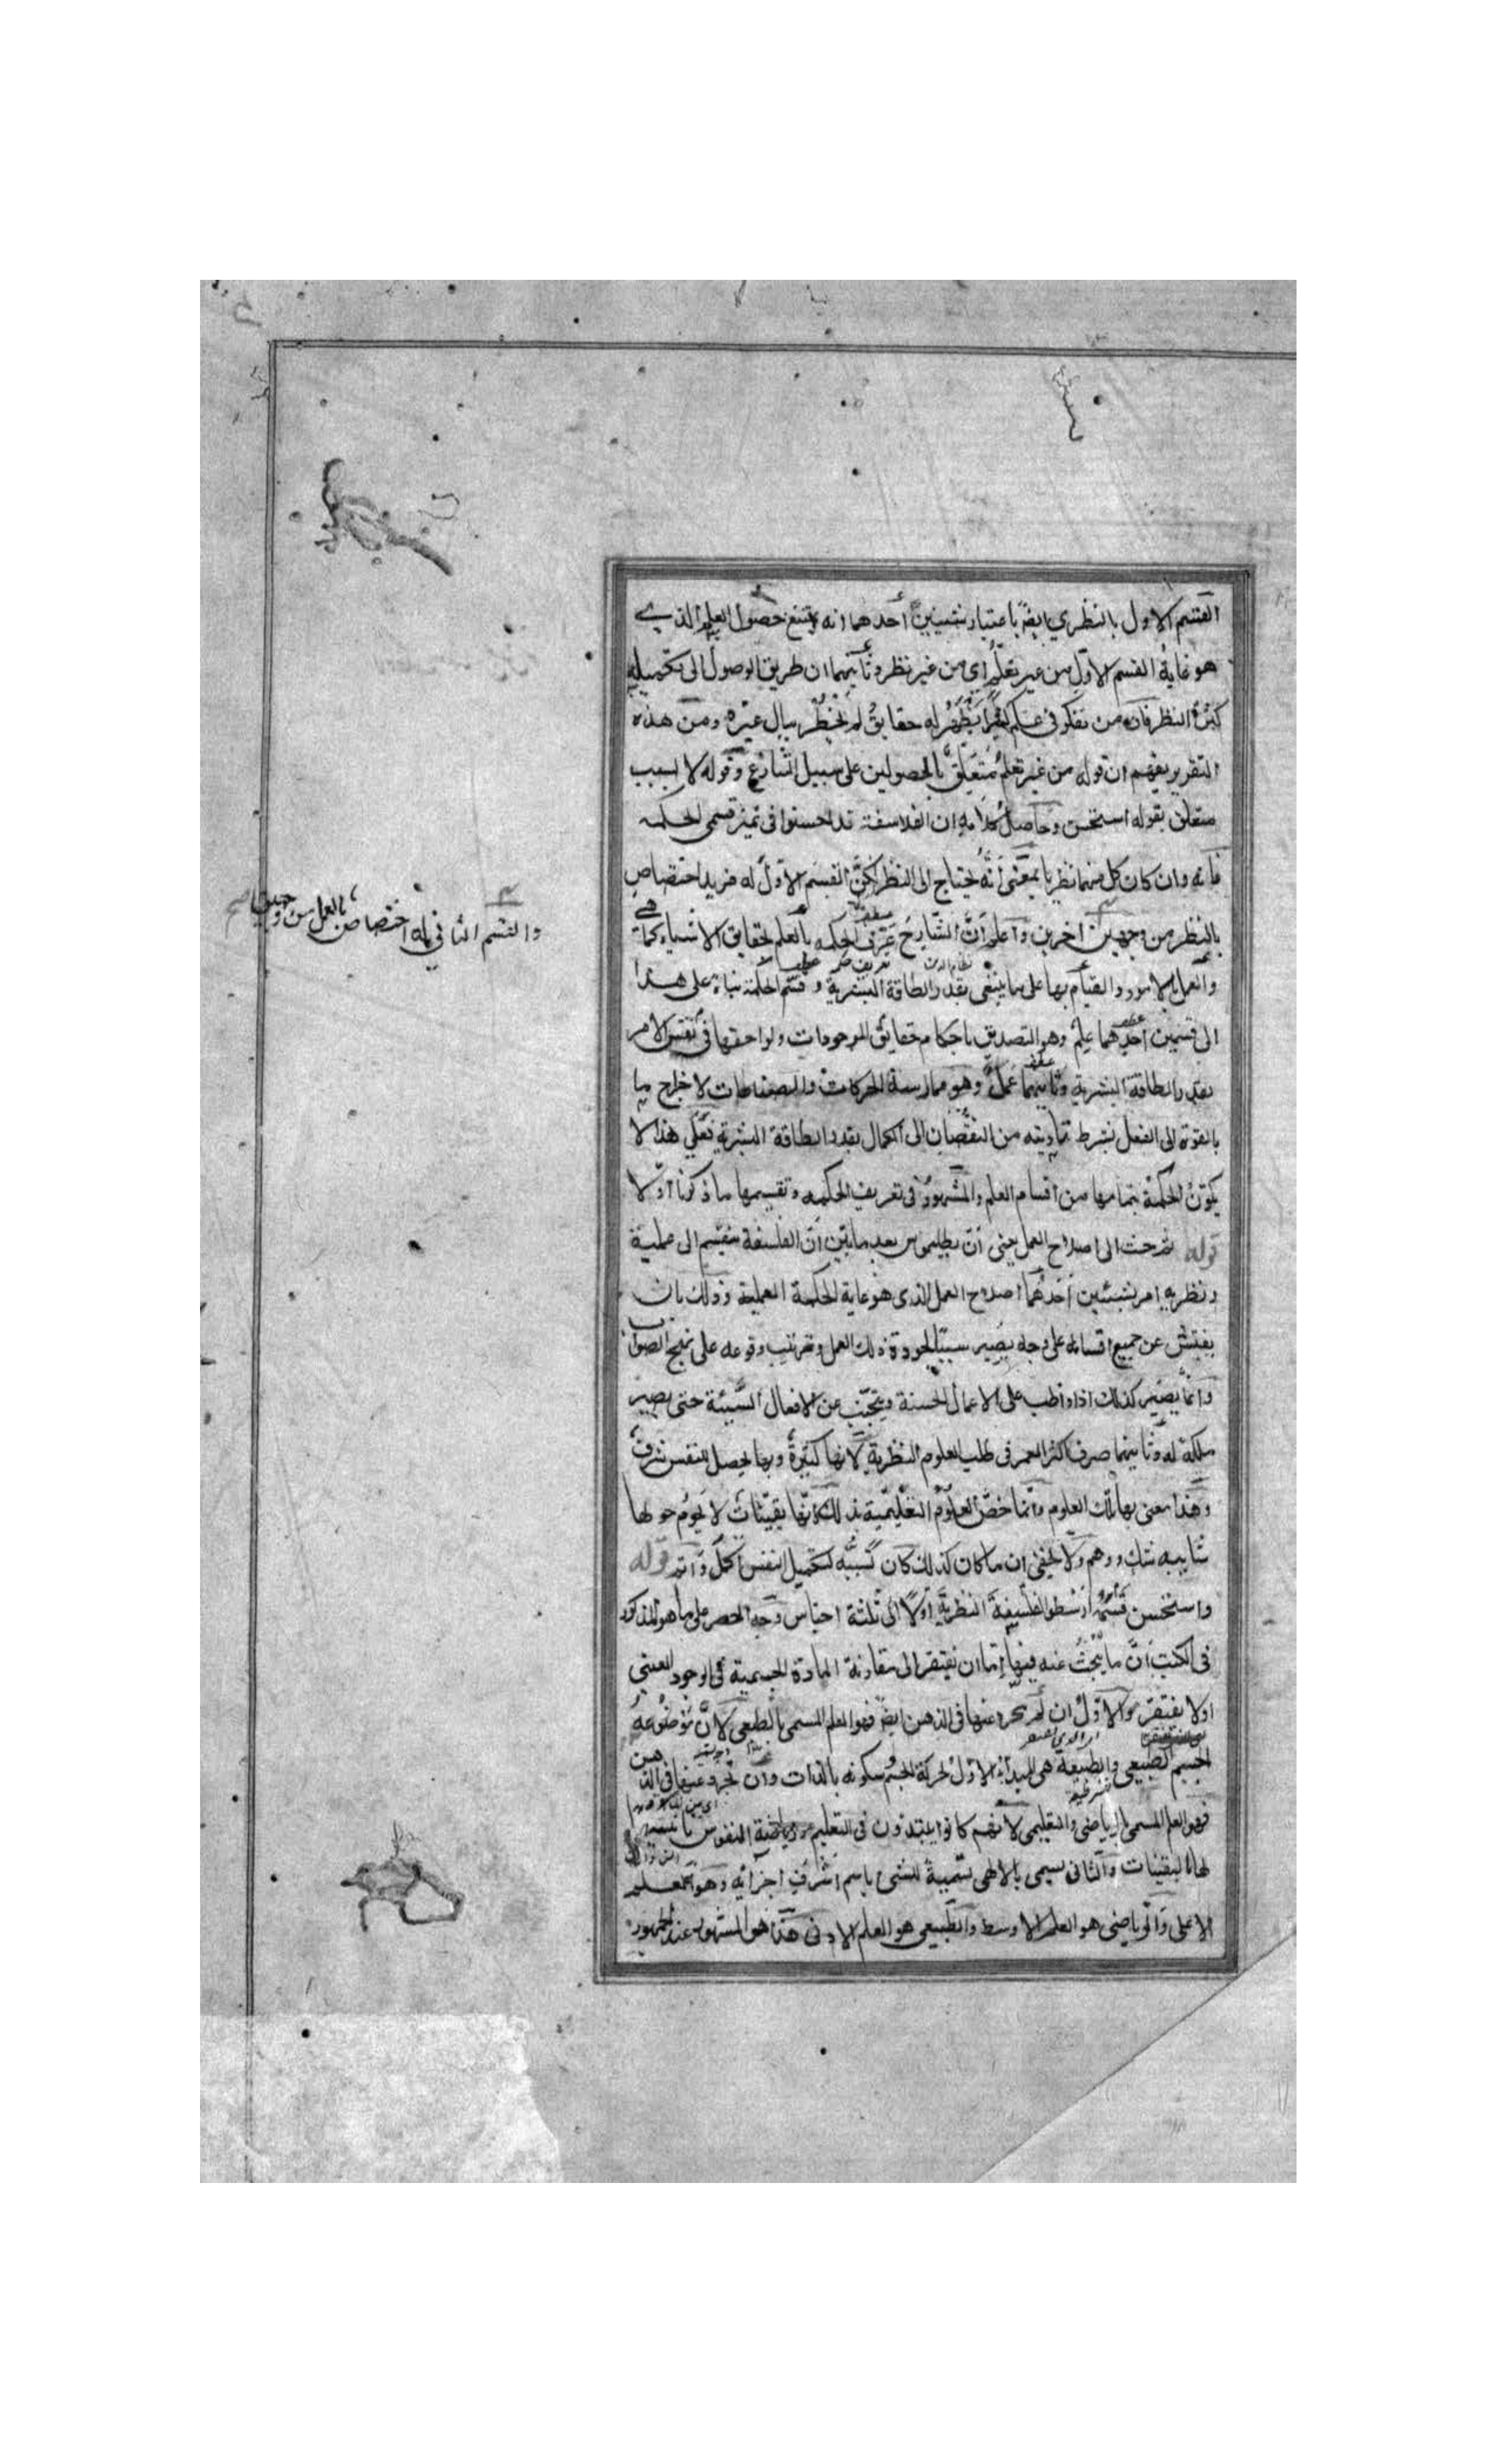 القسم الاول بالنظري ايضاً باعتبار شيئين احدهما انه يمتنع حصول العلم الذي
هو غاية القسم الاول من غير تعلم اي من غير نظر وثانيهما ان طريق الوصول الى تكميله
كثرة النظر فان من تفكر في علم كثيراً يظهر له حقايق لم يخطر ببال غيره ومن هذه
التقرير يفهم ان قوله من غير تعلم متعلق بالحصولين على سبيل التنازع وقوله لا بسبب
متعلق بقوله استحسن وحاصل كلامه ان الفلاسفة قد احسنوا في تميز قسمي الحكمه
فانه وان كان كل منهما نظريا بمعنى انه يحتاج الى النظر لكن القسم الاول له مزيد اختصاص
بالنظر من وجهين آخرين واعلم ان الشارح عرف الحكمه بالعلم بحقايق الاشياء كما هي
والعمل بالامور والقيام بها على ما ينبغي بقدر الطاقة البشرية وقسم الحكمة بناء على هذا
الى قسمين احدهما علم وهو التصديق باحكام حقايق الموجودات ولواحقها في نفس الامر
بقدر الطاقة البشرية وثانيهما عمل وهو ممارسة الحركات والصناعات لاخراج ما
بالقوة الى الفعل بشرط تأديته من النقصان الى الكمال بقدر الطاقة البشرية فعلى هذا لا
يكون الحكمة بتمامها من اقسام العلم والمشهور في تعريف الحكمه وتقسيمها ما ذكرنا اولا
قوله ثم حث الى اصلاح العمل يعني ان بطليموس بعد ما بين ان الفلسفة ينقسم الى عملية
ونظريه امر بشيئين احدهما اصلاح العمل الذي هو غاية الحكمة العملية وذلك بان
يفتش عن جميع اقسامه على وجه يصير سببا لجودة ذلك العمل وترتيب وقوعه على نهج الصواب
وانما يصير كذلك اذا واظب على الاعمال الحسنة ويتجنب عن الافعال السيئة حتى يصير
ملكة له وثانيهما صرف اكثر العمر في طلب العلوم النظرية لانها كثيرة وبها يحصل للنفس شرف
وهذا معنى بهاء تلك العلوم وانما خص العلوم التعليمية بذلك لانها يقينيات لا يحوم حولها
شايبه شك ووهم ولا يخفى ان ما كان كذلك كان كسبه لتكميل النفس اكمل واتم قوله
واستحسن قسمه ارسطو الفلسفة النظرية اولا الى ثلثة اجناس وجه الحصر على ما هو المذكور
في الكتب ان ما يبحث عنه فيها اما ان يفتقر الى مقارنة المادة الجسمية في الوجود العيني
اولا يفتقر والاول ان لم يجرد عنها في الذهن ايضا فهو العلم المسمى بالطبعي لان موضوعه
الجسم الطبيعي والطبيعة هي المبدأ الاول لحركة الجسم وسكونه بالذات وان تجرد عنها في الذهن
فهو العلم المسمى بالرياضي والتعليمي لانهم كانوا يبتدؤن في التعليم ورياضة النفوس بها
لها اليقينيات والثاني يسمى بالالهي تسمية للشئ باسم اشرف اجزائه وهو العلم
الاعلى والرياضي هو العلم الاوسط والطبيعي هو العلم الادنى هذا هو المشهور عند الجمهور
والقسم الثاني له اختصاص بالعمل من وجهين صح